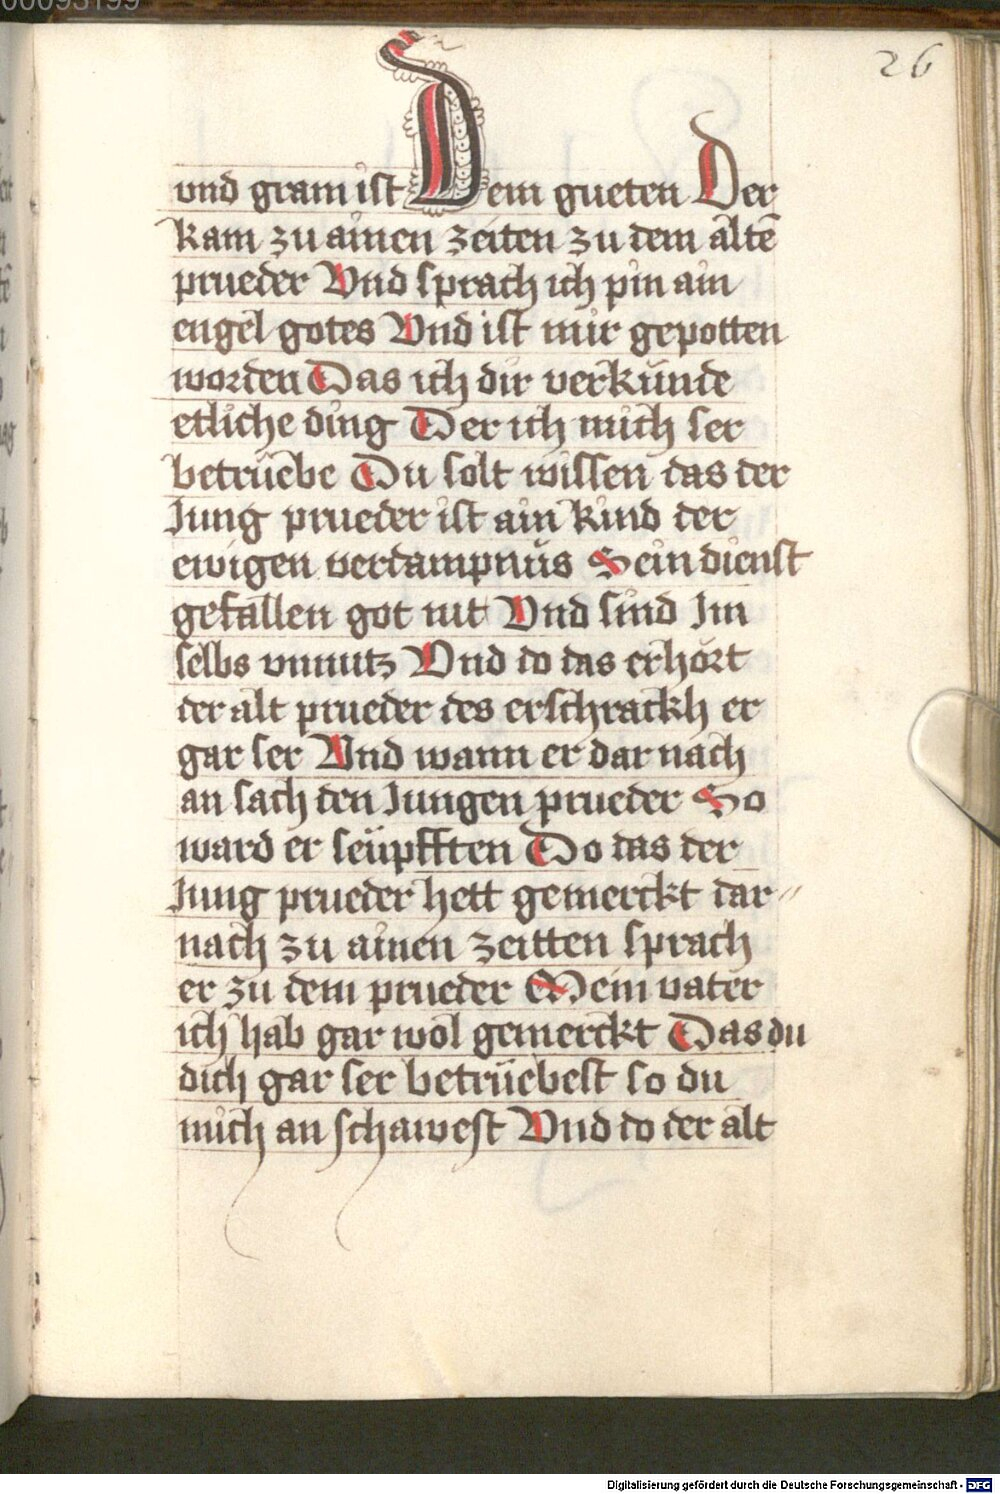 00093199
26
vnd gram ist Dem gueten Der
kam zu ainen zeiten zu dem altē
prueder Vnd sprach ich pin ain
engel gotes Vnd ist mir gepotten
worden Das ich dir verkünde
etliche ding Der ich mich ser
betrüebe Du solt wissen das der
Jung prueder ist ain kind der
ewigen verdampnüs Sein dienst
gefallen got nit Vnd sind Im
selbs vnnutz Vnd do das erhört
der alt prueder des erschrackh er
gar ser Vnd wann er dar nach
an sach den Jungen prueder So
ward er seüpfften Do das der
Jung prueder hett gemerckt dar〃
nach zu ainen zeitten sprach
er zu dem prueder Mein vater
ich hab gar wol gemerckt Das du
dich gar ser betrüebest so du
mich an schawest Vnd do der alt
Digitalisierung gefördert durch die Deutsche Forschungsgemeinschaft - DFG